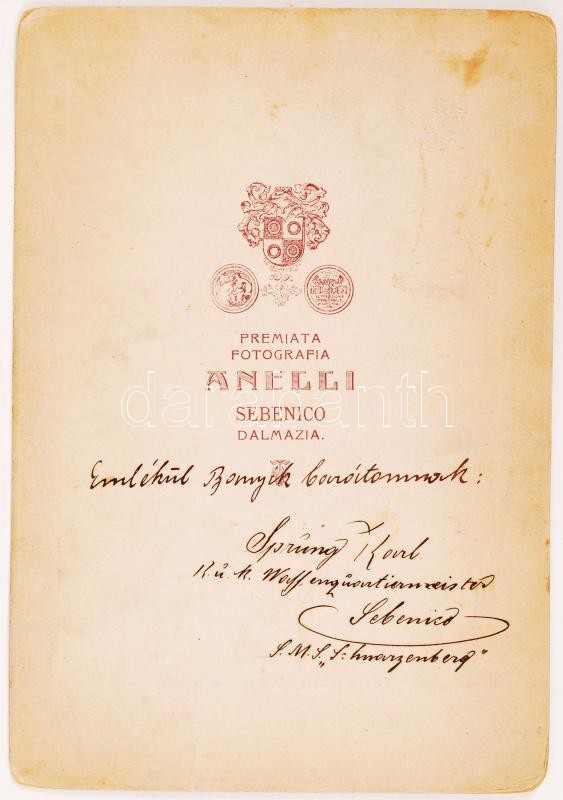 PREMIATA
FOTOGRAFIA
ANELLI
SEBENICO
DALMAZIA.
darabanth
Emlékül Banyik barátomnak:
Sprung Karl
K. u. k. Waffenquartiermeister
Sebenico
S.M.S. „Schwarzenberg"